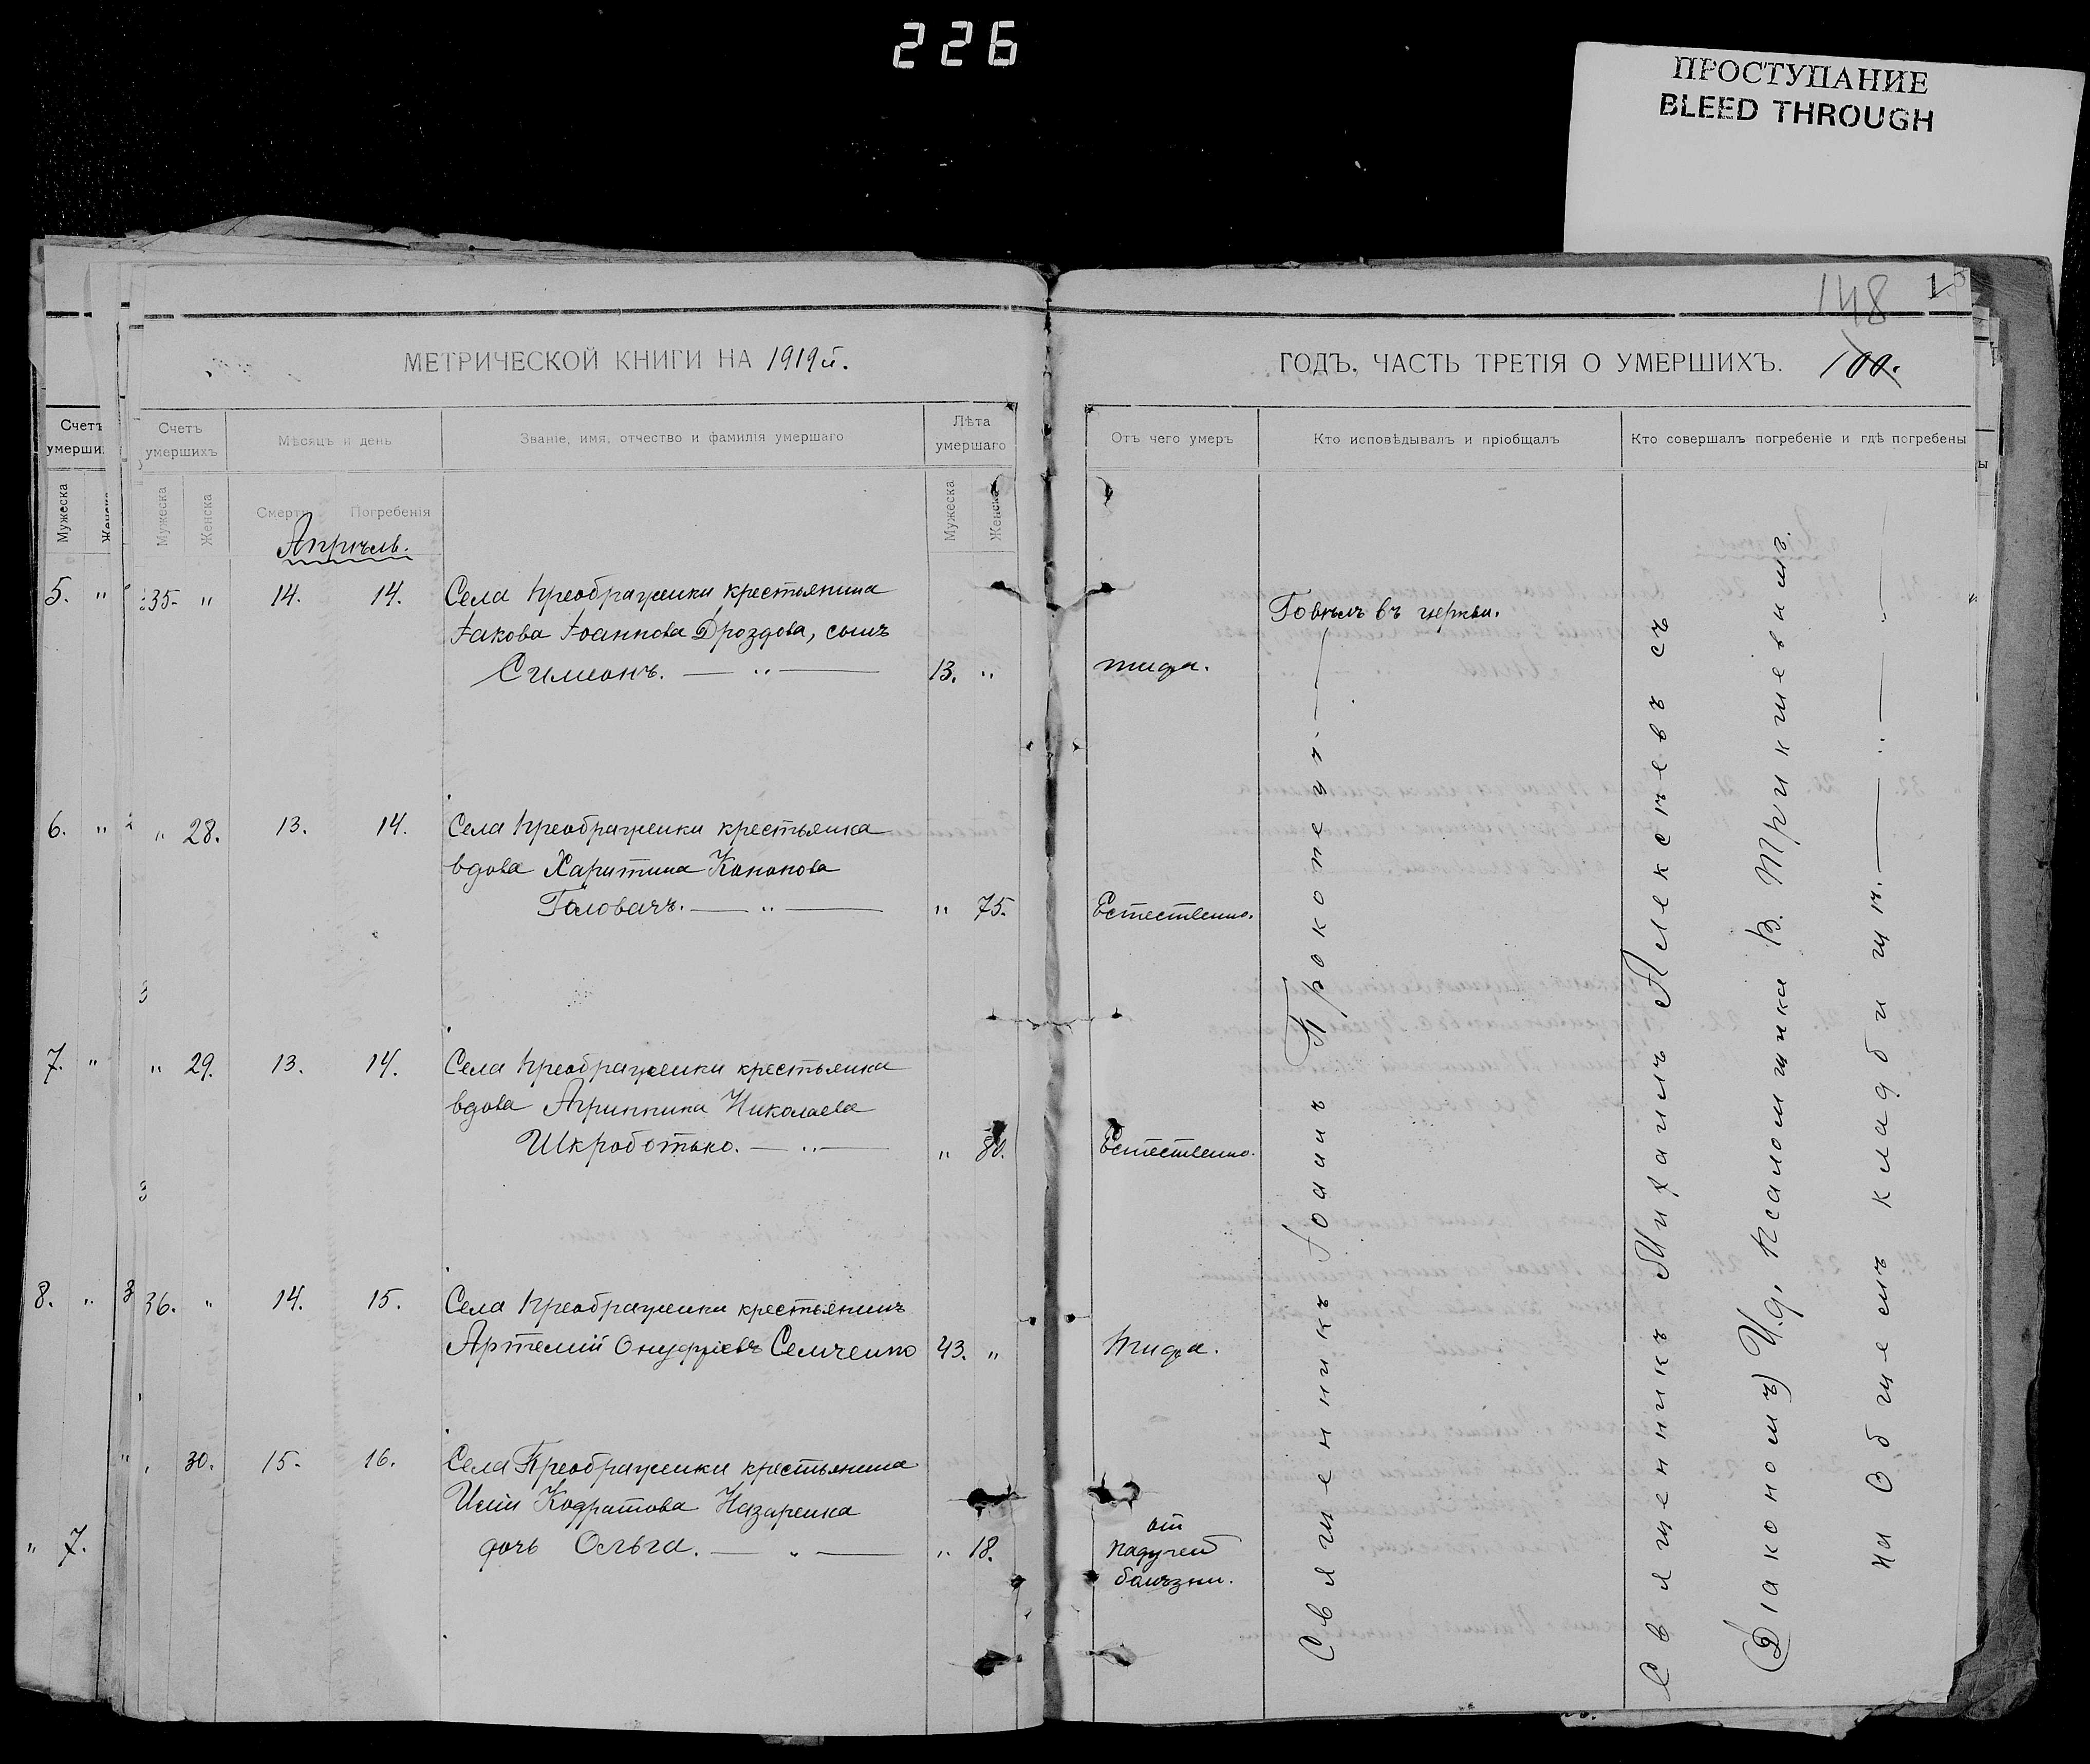 226
ПРОСТУПАНИЕ
BLEED THROUGH
148
МЕТРИЧЕСКОЙ КНИГИ НА 1919й.
ГОДЪ, ЧАСТЬ ТРЕТІЯ О УМЕРШИХЪ. 100.
Счетъ умершихъ
Мѣсяцъ и день
Званіе, имя, отчество и фамилія умершаго
Лѣта умершаго
Отъ чего умеръ
Кто исповѣдывалъ и пріобщалъ
Кто совершалъ погребеніе и гдѣ погребены
Мужеска Женска Смерти Погребенія Мужеска Женска
Апрѣль.
35. " 14. 14. Села Преображенки крестьянина
Іакова Іоаннова Дроздова, сынъ
Симионъ. — " — 13. " тифа.
Говѣлъ въ церкви.
" 28. 13. 14. Села Преображенки крестьянка
вдова Харитина Кононова
Головачъ. — " — " 75. Естественно.
" 29. 13. 14. Села Преображенки крестьянка
вдова Агрипина Николаева
Шкроботько. — " — " 80. Естественно.
36. " 14. 15. Села Преображенки крестьянинъ
Артемий Онуфріевъ Семченко 43. " Тифа.
" 30. 15. 16. Села Преображенки крестьянина
Кодратова Назаренка
дочь Ольга. — " — " 18. от
падучей
болѣзни.
Священникъ Іоаннъ Прокопецъ. —
Священникъ Михаилъ Алексѣевъ съ
(Діакономъ) И.д. Псаломщика В. Трикшевимъ.
на Общемъ кладбищѣ. — " — " —
5. "
6. "
7. "
8. "
" 7.